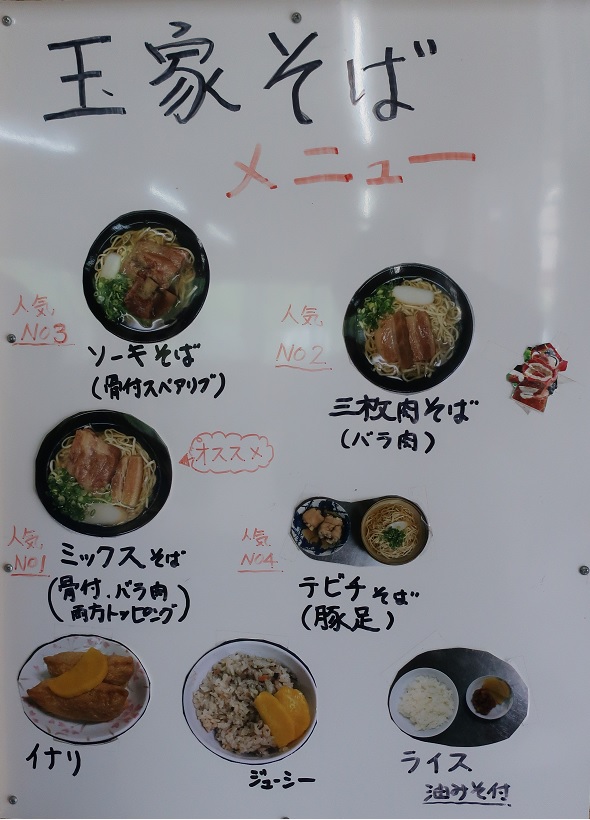 玉家そば
メニュー
人気
NO3
ソーキそば
(骨付スペアリブ)
人気
NO2
三枚肉そば
(バラ肉)
人気
NO1
オススメ
ミックスそば
(骨付、バラ肉
両方トッピング)
人気
NO4
テビチそば
(豚足)
イナリ
ジューシー
ライス
油みそ付